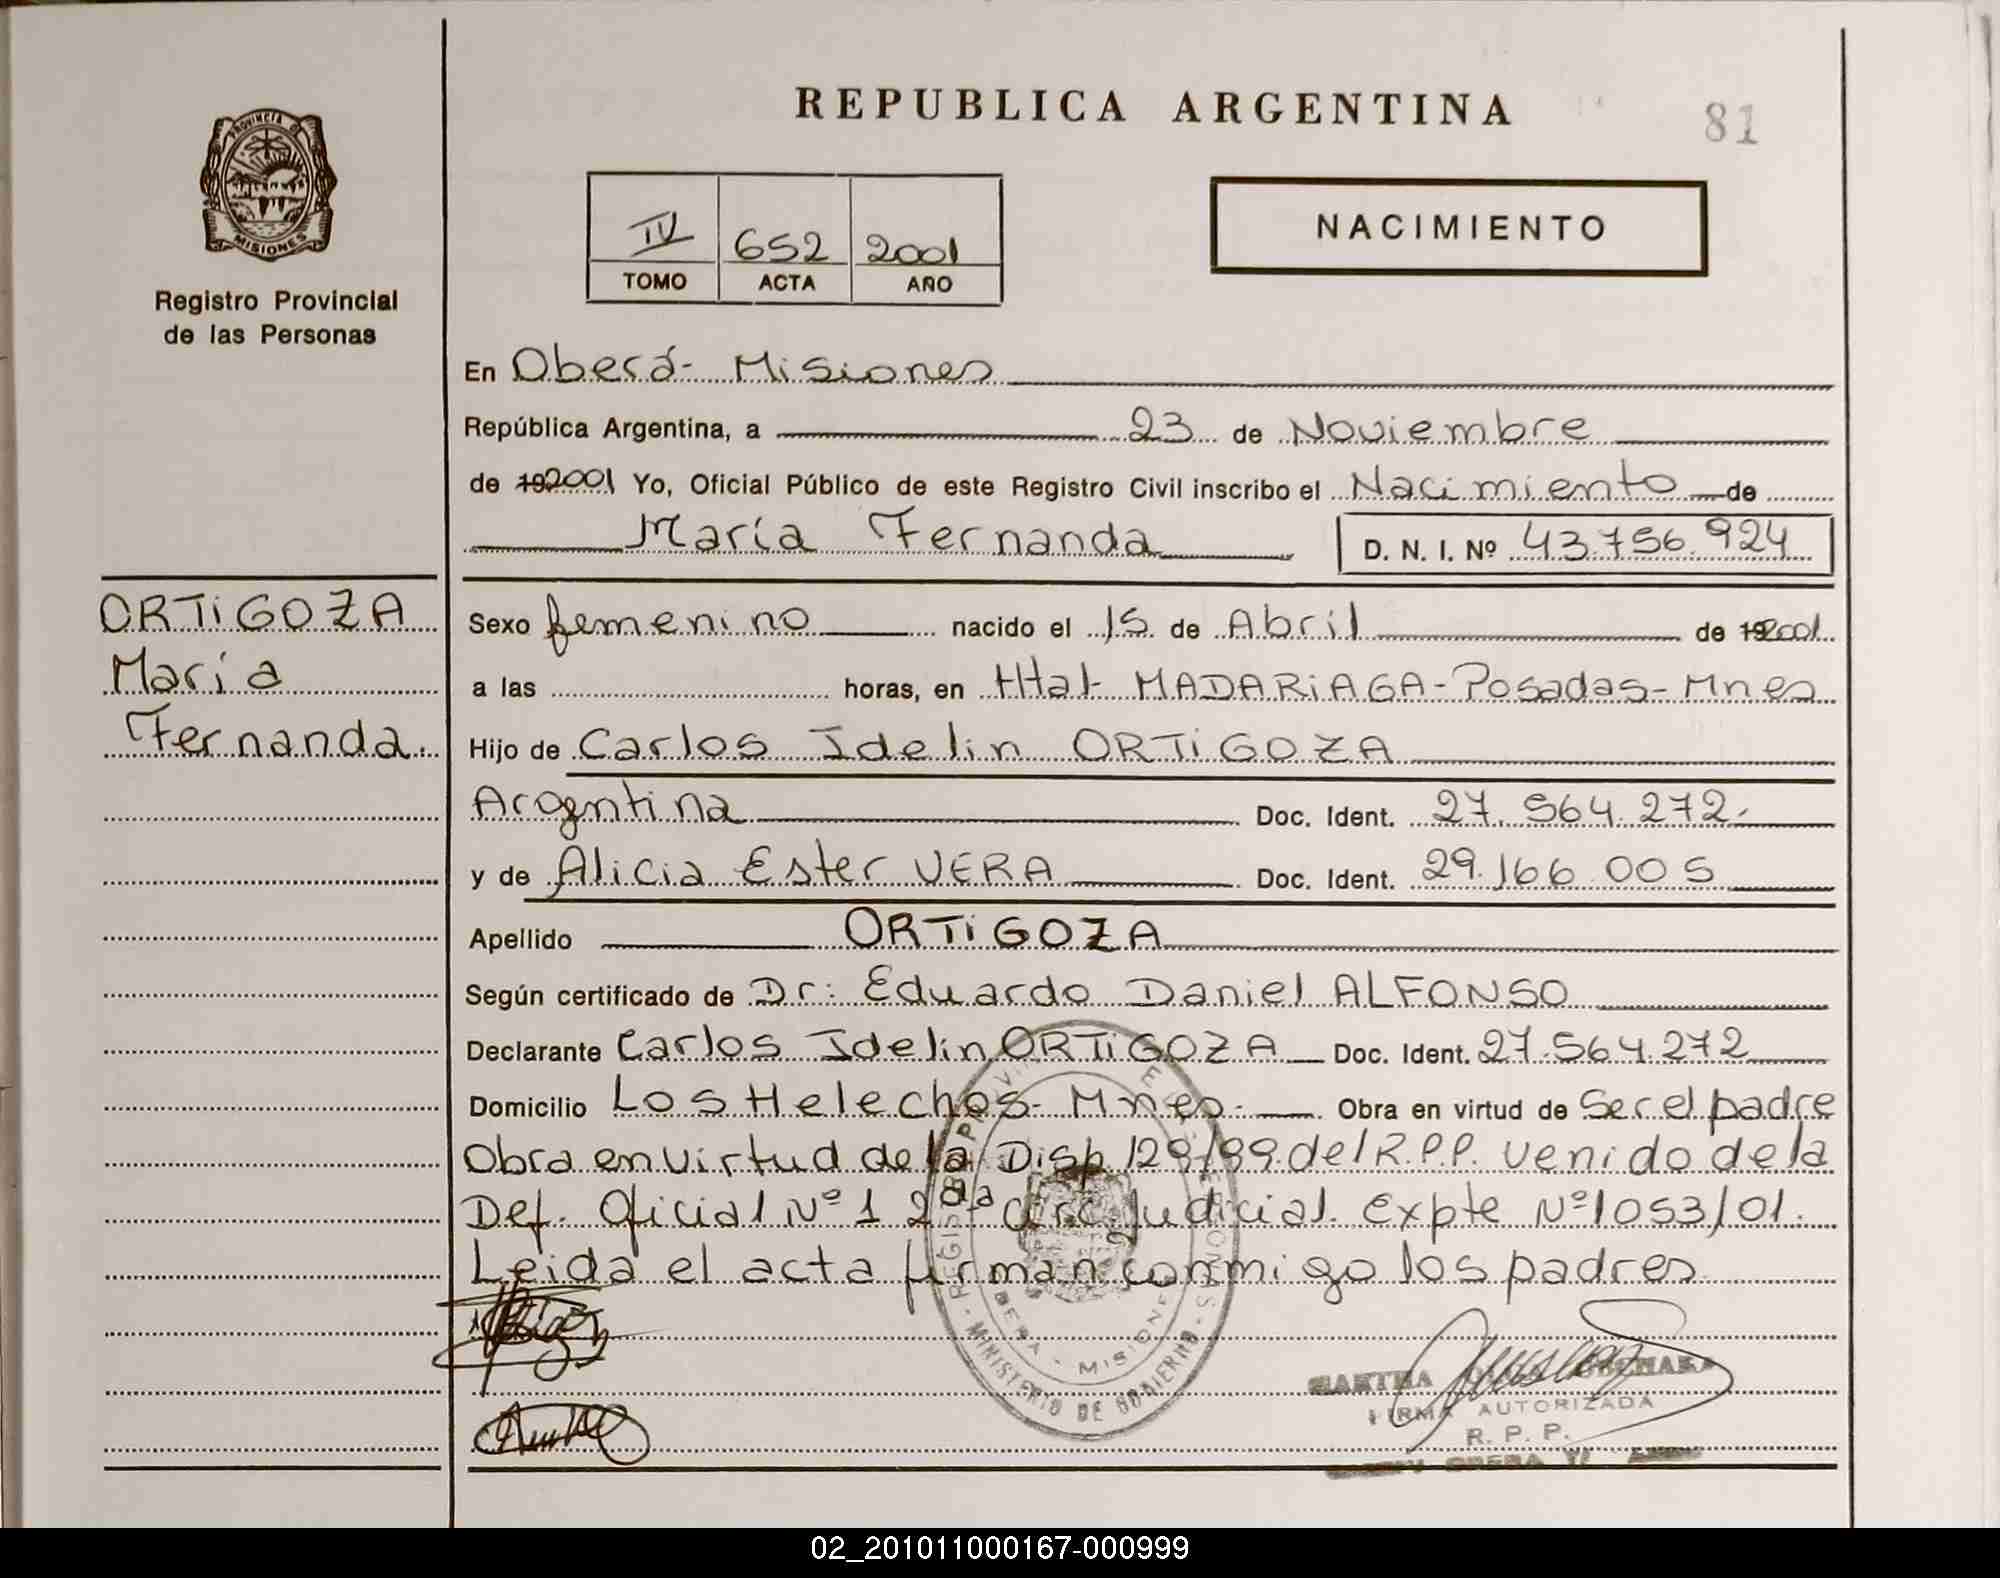 REPUBLICA ARGENTINA
81
PROVINCIA DE
MISIONES
Registro Provincial
de las Personas
IV 652 2001
TOMO ACTA AÑO
NACIMIENTO
En Oberá- Misiones
República Argentina, a 23 de Noviembre
de 192001 Yo, Oficial Público de este Registro Civil inscribo el Nacimiento de
María Fernanda D. N. I. Nº 43.756.924
ORTiGOZA
María
Fernanda.
Sexo femenino nacido el 15 de Abril de 192001
a las horas, en Htal MADARiAGA-Posadas-Mnes
Hijo de Carlos Idelin ORTiGOZA
Argentina Doc. Ident. 27.564.272.
y de Alicia Ester VERA Doc. Ident. 29.166.005
Apellido ORTiGOZA
Según certificado de Dr: Eduardo Daniel ALFONSO
Declarante Carlos Idelin ORTiGOZA Doc. Ident. 27.564.272
Domicilio Los Helechos- Mnes- Obra en virtud de Ser el padre
Obra en virtud de la Disp. 128/99 del R.P.P. venido de la
Def. Oficial Nº 1 2da Circ. Judicial. Expte Nº 1053/01.
Leida el acta firman conmigo los padres
MISIONES
MINISTERIO DE GOBIERNO
MARTHA
FIRMA AUTORIZADA
R. P. P.
OBERA
02_201011000167-000999